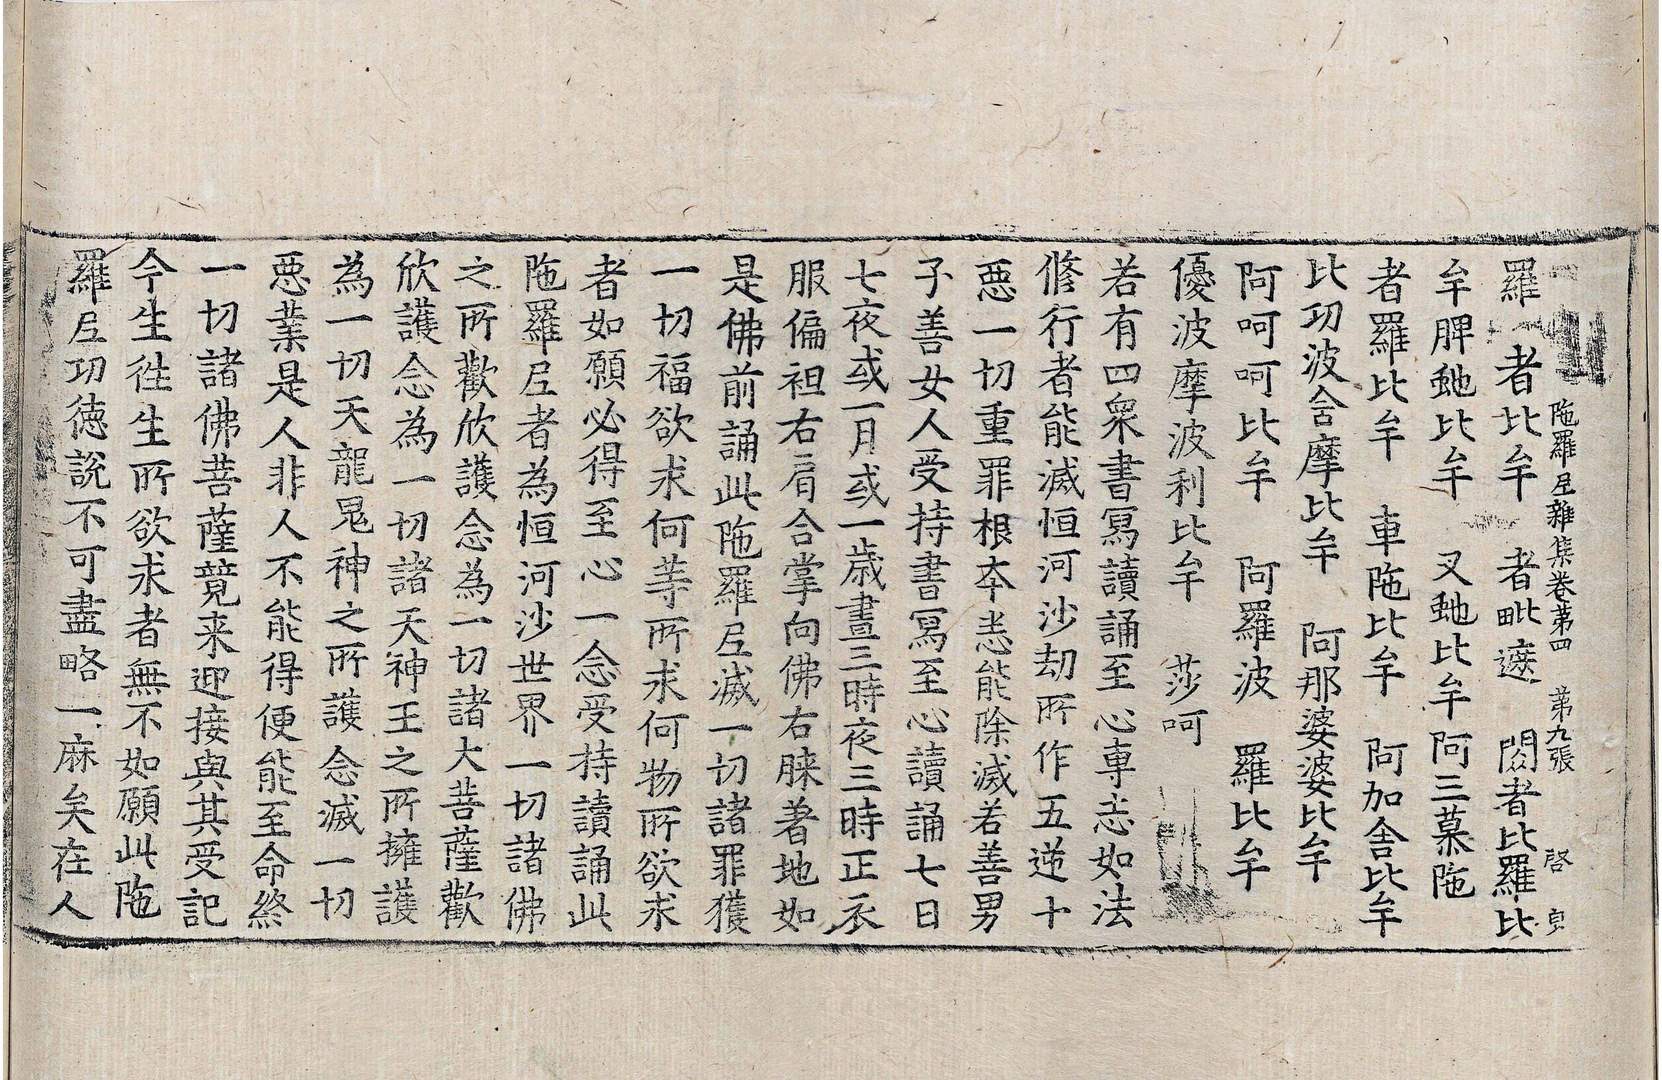 陁羅尼雜集卷第四 第九張 啓
羅 者比牟 者毗遮 閻者比羅比
牟脾虵比牟 又虵比牟阿三慕陁
者羅比牟 車陁比牟 阿加舍比牟
比功波舍摩比牟 阿那婆婆比牟
阿呵呵比牟 阿羅波 羅比牟
優波摩波利比牟 莎呵
若有四衆書冩讀誦至心專志如法
脩行者能滅恒河沙劫所作五逆十
惡一切重罪根夲悉能除滅若善男
子善女人受持書冩至心讀誦七日
七夜或一月或一歳晝三時夜三時正衣
服偏袒右肩合掌向佛右膝著地如
是佛前誦此陁羅尼滅一切諸罪獲
一切福欲求何䓁所求何物所欲求
者如願必得至心一念受持讀誦此
陁羅尼者為恒河沙世界一切諸佛
之所歡欣護念為一切諸大菩薩歡
欣護念為一切諸天神王之所擁護
為一切天龍鬼神之所護念滅一切
惡業是人人非人不能得便能至命終
一切諸佛菩薩競来迎接與其受記
今生徃生所欲求者無不如願此陁
羅尼功德說不可盡略一麻矣在人